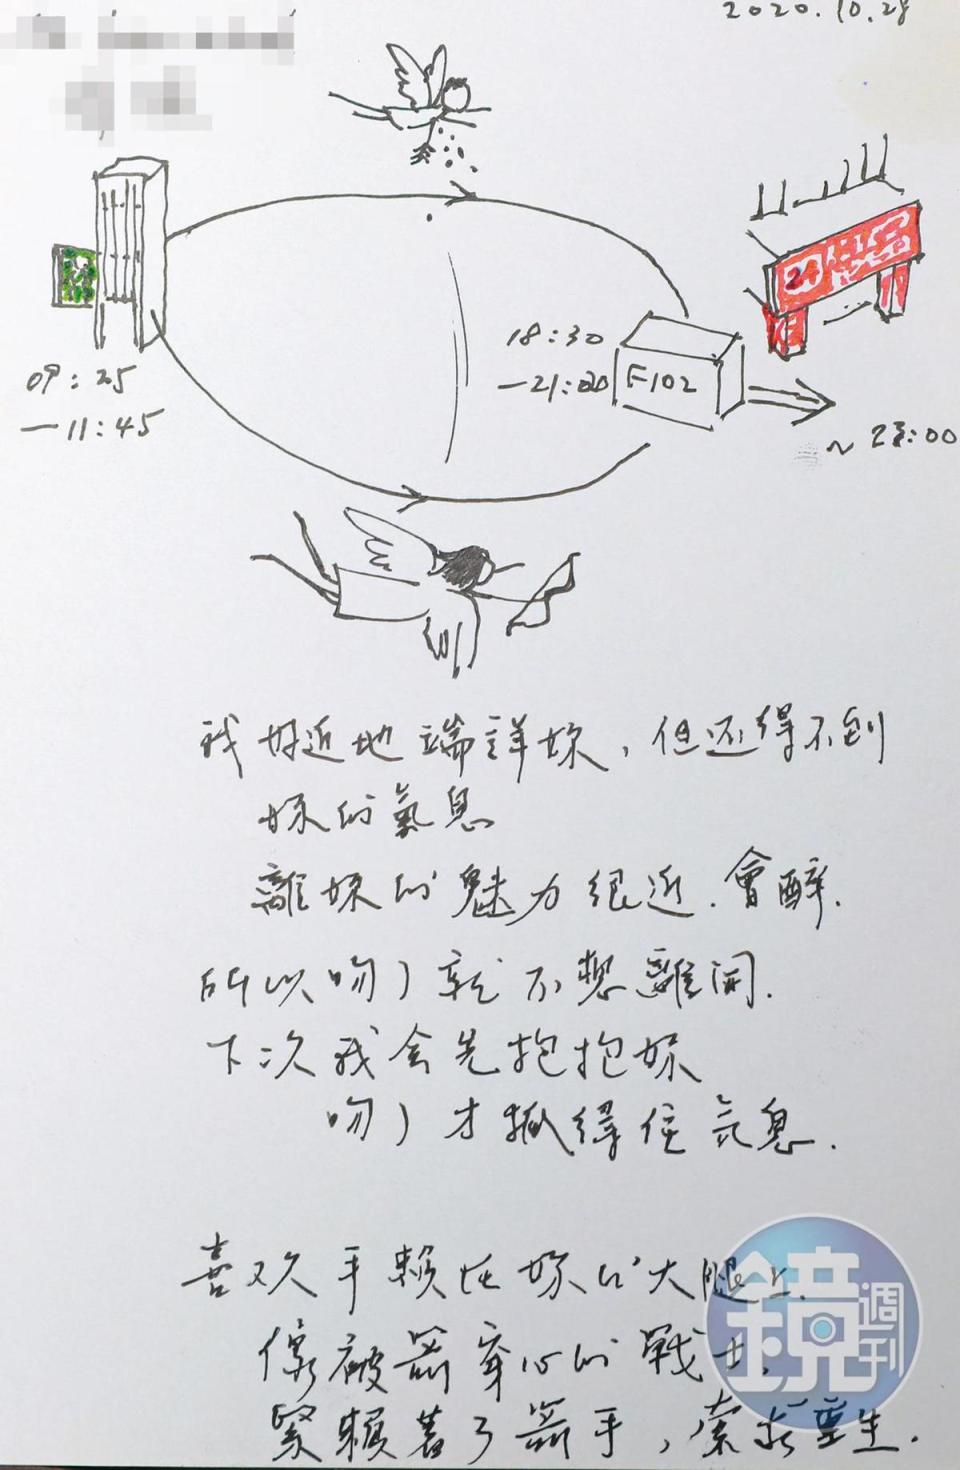 2020.10.28
24
09:25
—11:45
18:30
—21:00
F102
~23:00
我好近地端詳妳，但还得不到
妳的氣息
離妳的魅力很近.會醉.
所以吻了就不想離開.
下次我会先抱抱妳
吻了才抓得住気息.
喜欢手賴在妳的大腿上.
像被箭穿心的戰士.
緊賴著了箭手，索求重生.
鏡週刊